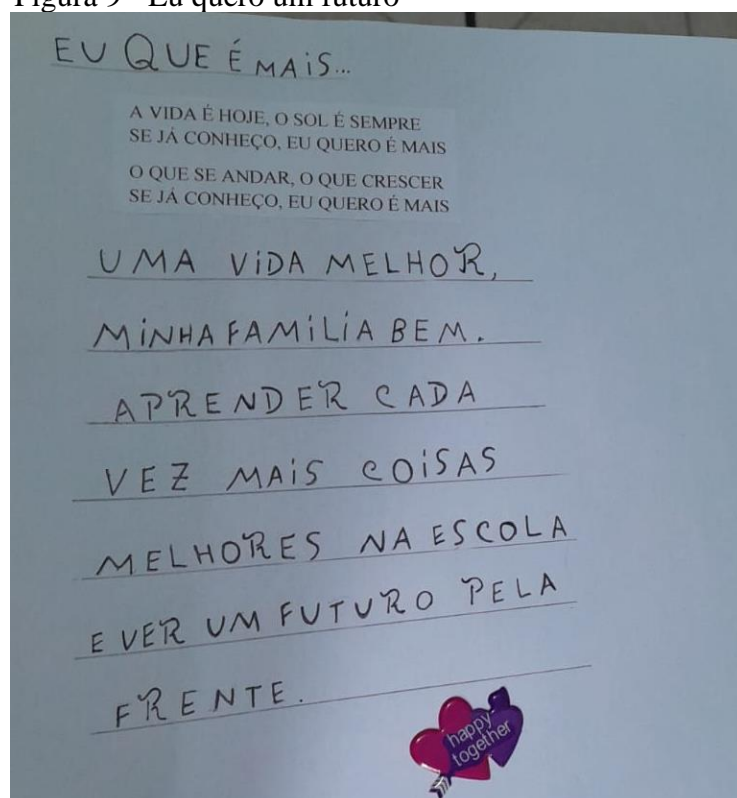 Figura 9 - Eu quero um futuro
EU QUE É MAIS...
A VIDA É HOJE, O SOL É SEMPRE
SE JÁ CONHEÇO, EU QUERO É MAIS
O QUE SE ANDAR, O QUE CRESCER
SE JÁ CONHEÇO, EU QUERO É MAIS
UMA VIDA MELHOR,
MINHA FAMILIA BEM.
APRENDER CADA
VEZ MAIS COISAS
MELHORES NA ESCOLA
E VER UM FUTURO PELA
FRENTE.
happy
together